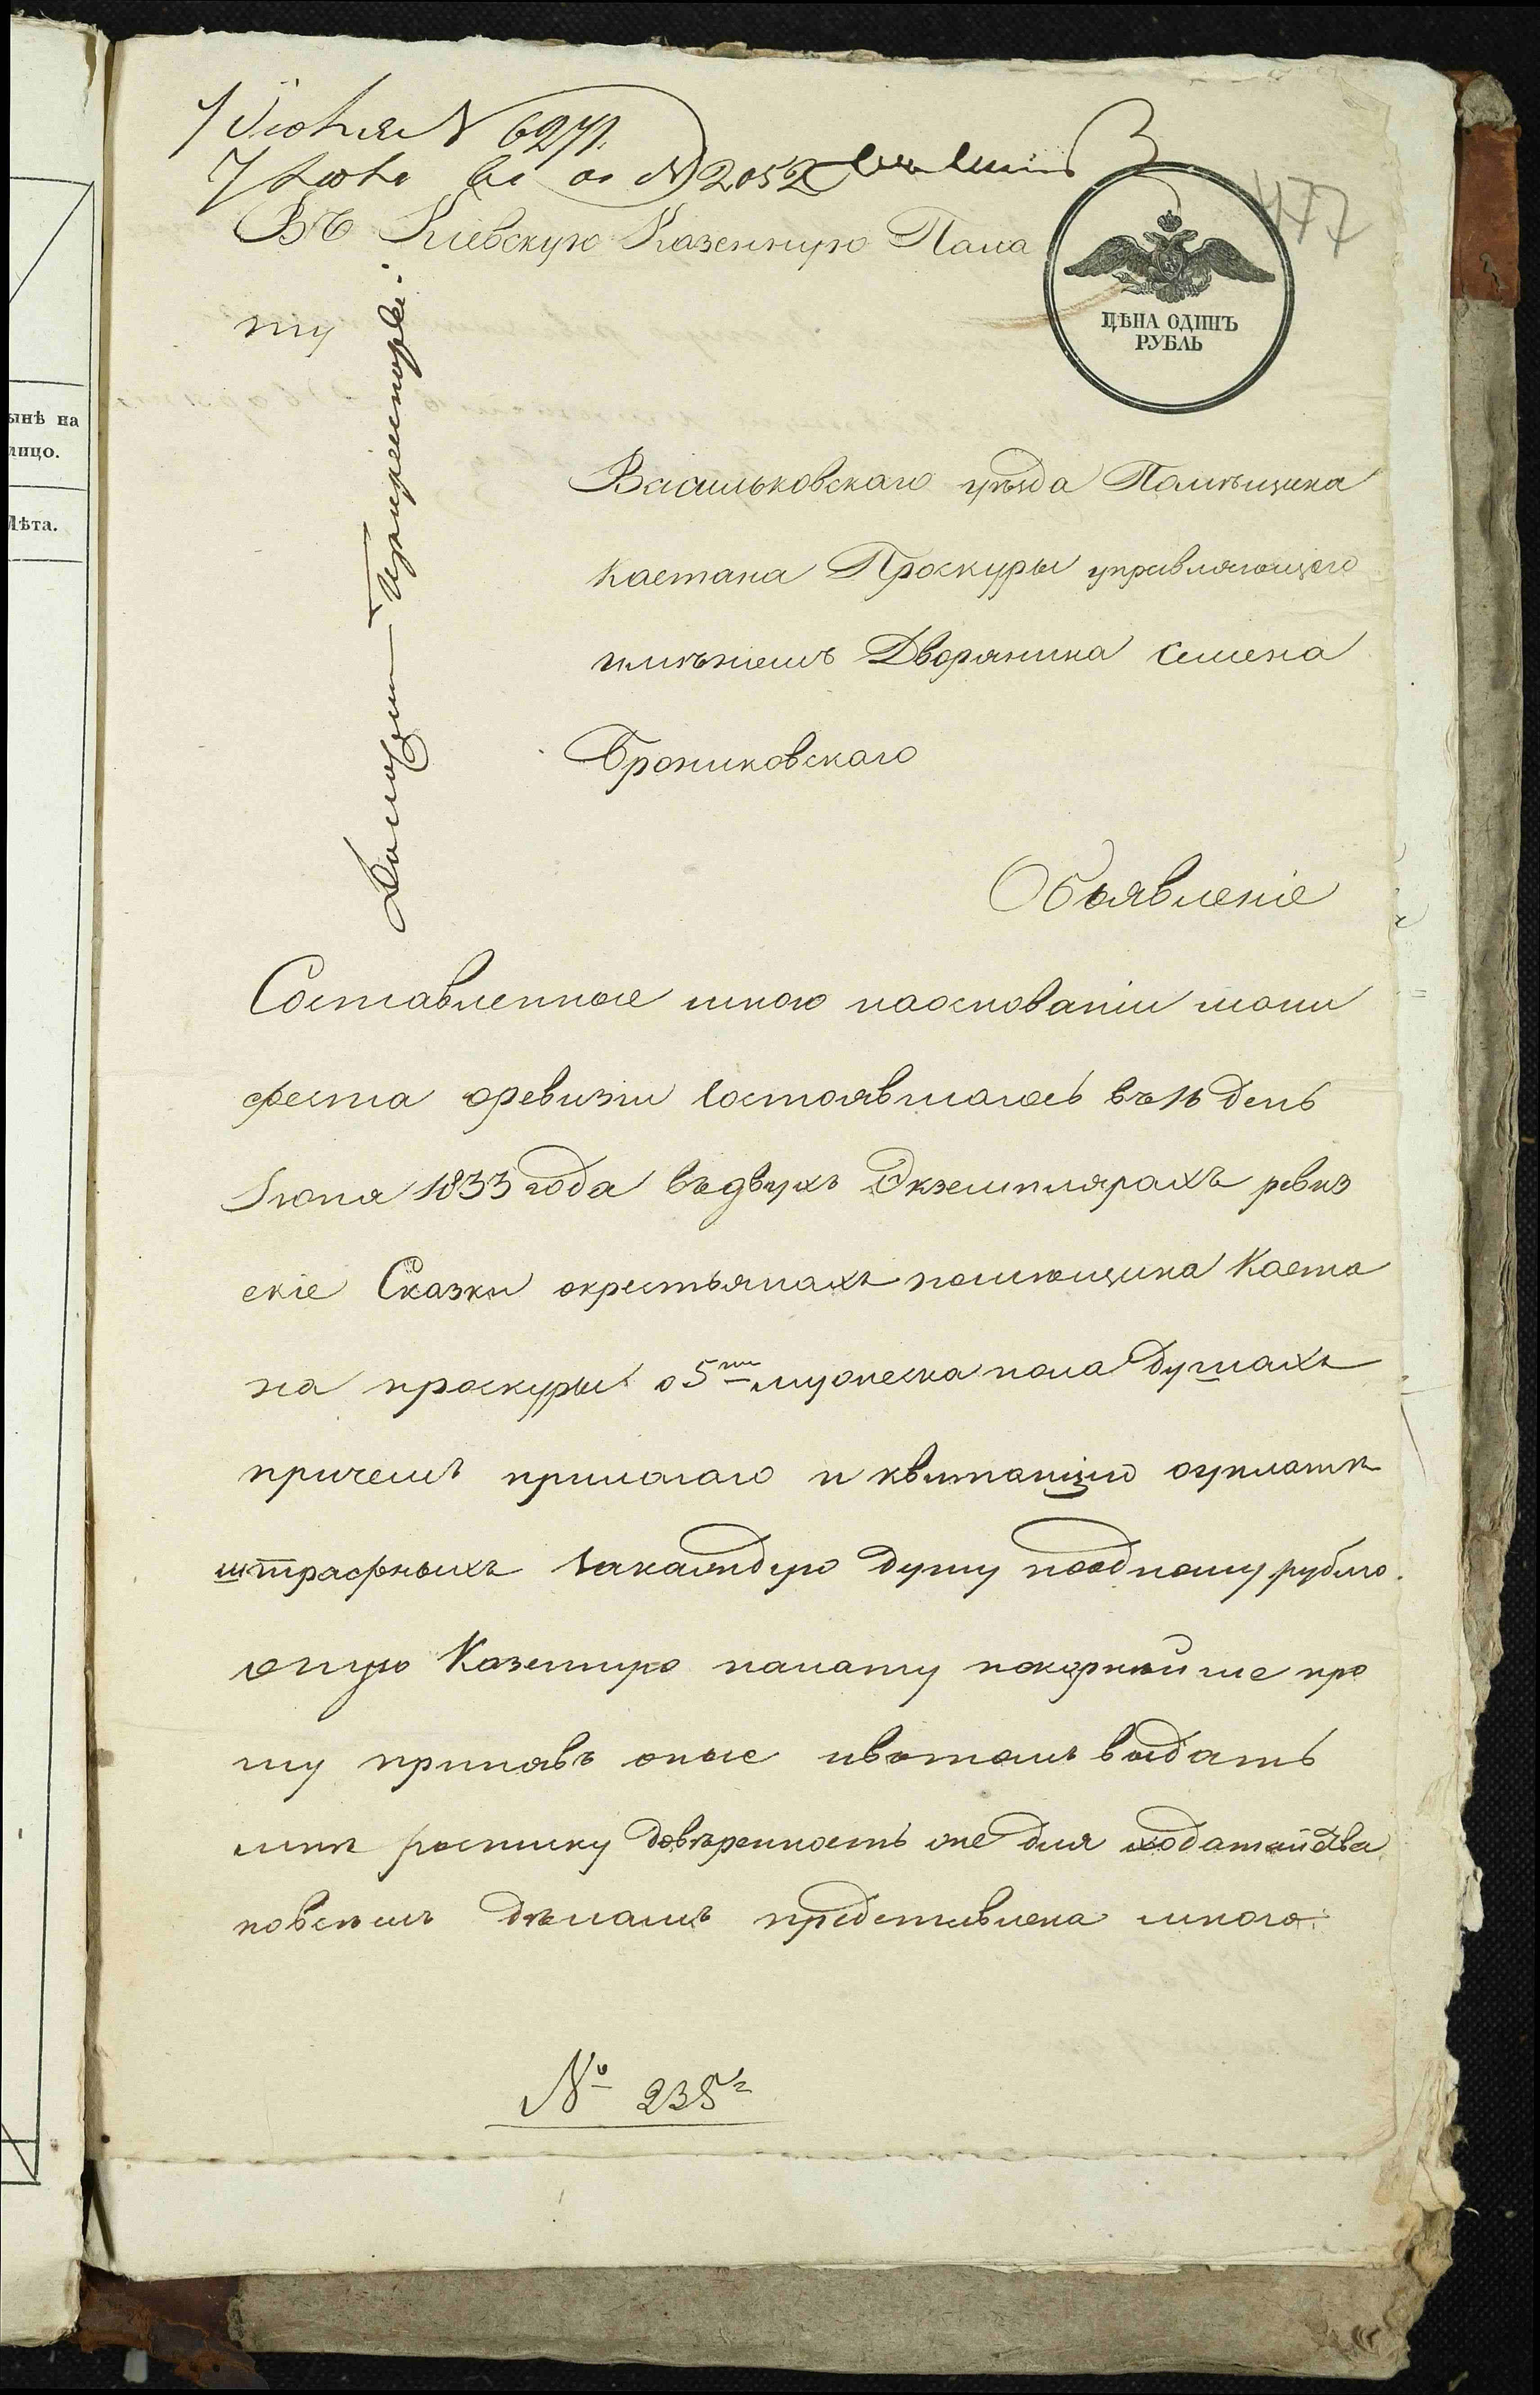 Іюня N 6271.
N 2052
477
Въ Кіевскую Казенную Пала
ту
ЦѢНА ОДИНЪ
РУБЛЬ
Васильковскаго уѣзда Помѣщика
Каетана Проскуры управляющего
имѣніемъ Дворянина Семена
Брониковскаго
Объявленіе
Составленные мною наоснованіи мани
феста оревизіи состоявшагось въ 16 день
Іюня 1833 года въдвухъ Экземплярахъ ревиз
скіе Сказки окрестьянахъ помѣщика Каета
на проскуры о 5ти мужеска пола душахъ
причемъ прилагаю и квитанцію оуплатѣ
штрафныхъ закаждую душу поодному рублю.
оную Казенную палату покорнейше про
шу принявъ оные ивтомъ выдать
мнѣ росписку довѣренность же для ходатайства
повсѣмъ дѣламъ представлена мною.
№ 235
ынѣ на
лицо.
Лѣта.